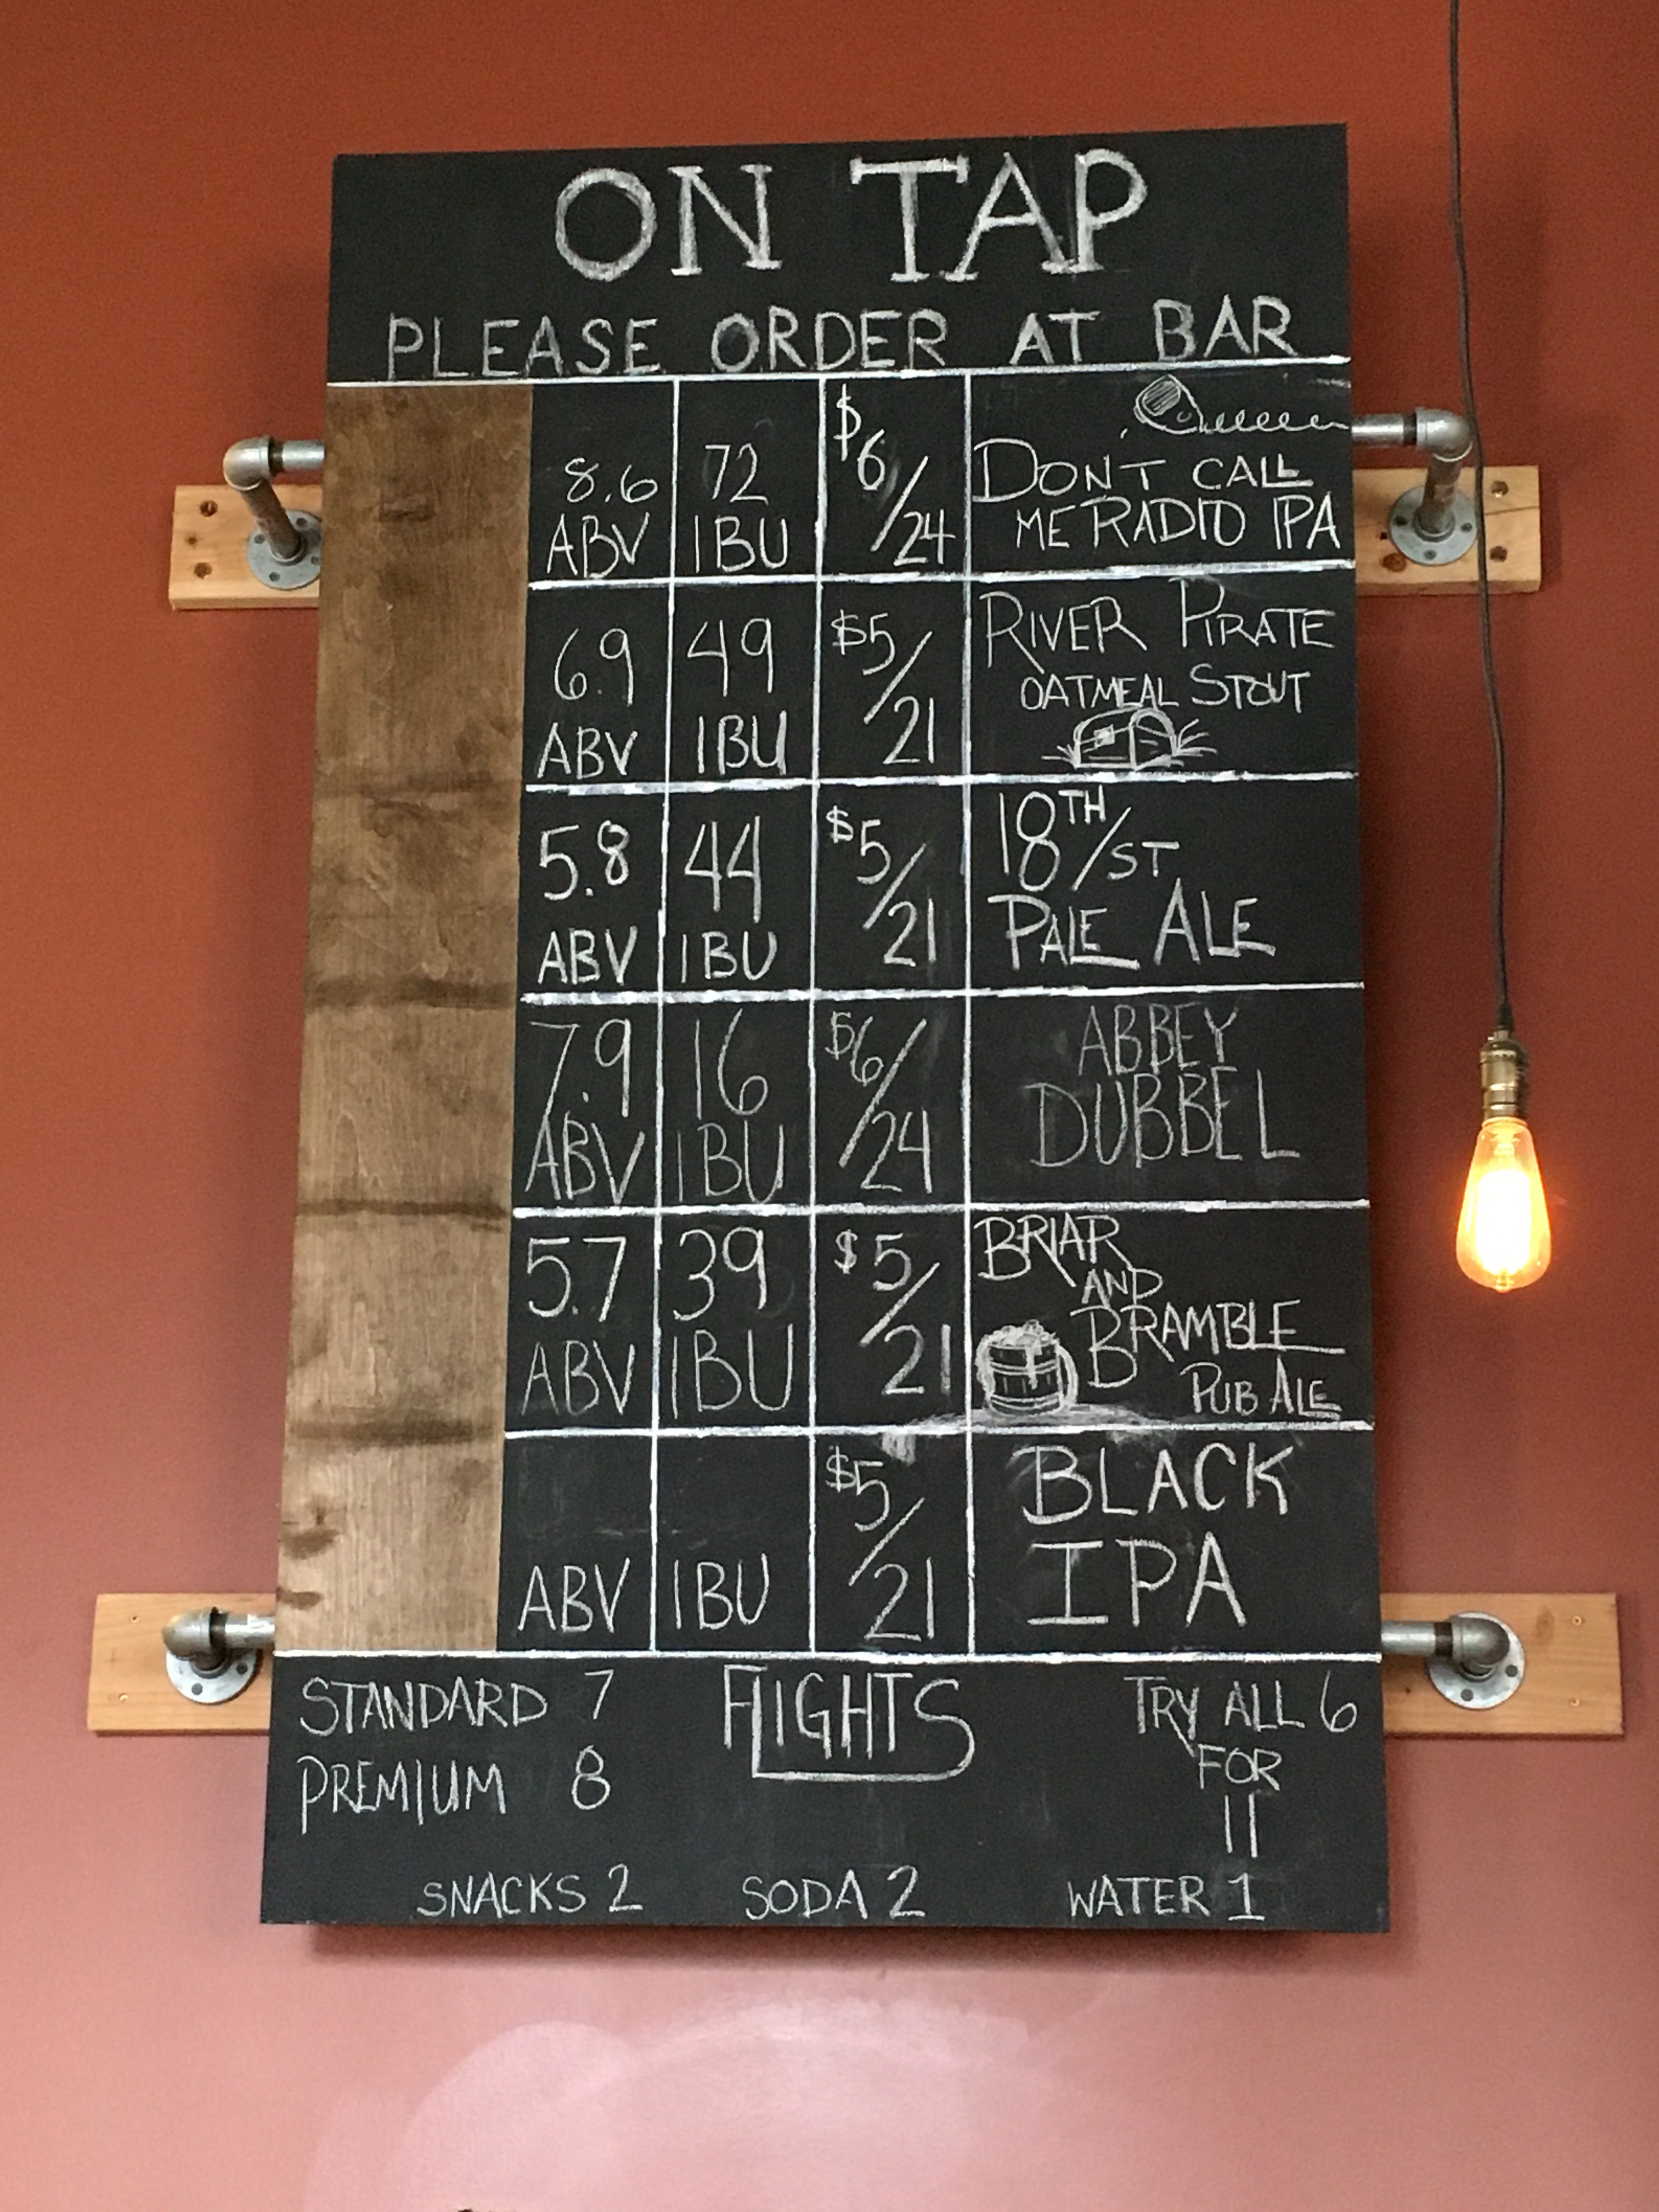 ON TAP
PLEASE ORDER AT BAR
8.6
ABV
72
IBU
$6/24
DON'T CALL
ME RADIO IPA
6.9
ABV
49
IBU
$5/21
RIVER PIRATE
OATMEAL STOUT
5.8
ABV
44
IBU
$5/21
18TH/ST
PALE ALE
7.9
ABV
16
IBU
$6/24
ABBEY
DUBBEL
5.7
ABV
39
IBU
$5/21
BRIAR
AND
BRAMBLE
PUB ALE
ABV
IBU
$5/21
BLACK
IPA
STANDARD 7
PREMIUM 8
FLIGHTS
TRY ALL 6
FOR
11
SNACKS 2 SODA 2 WATER 1